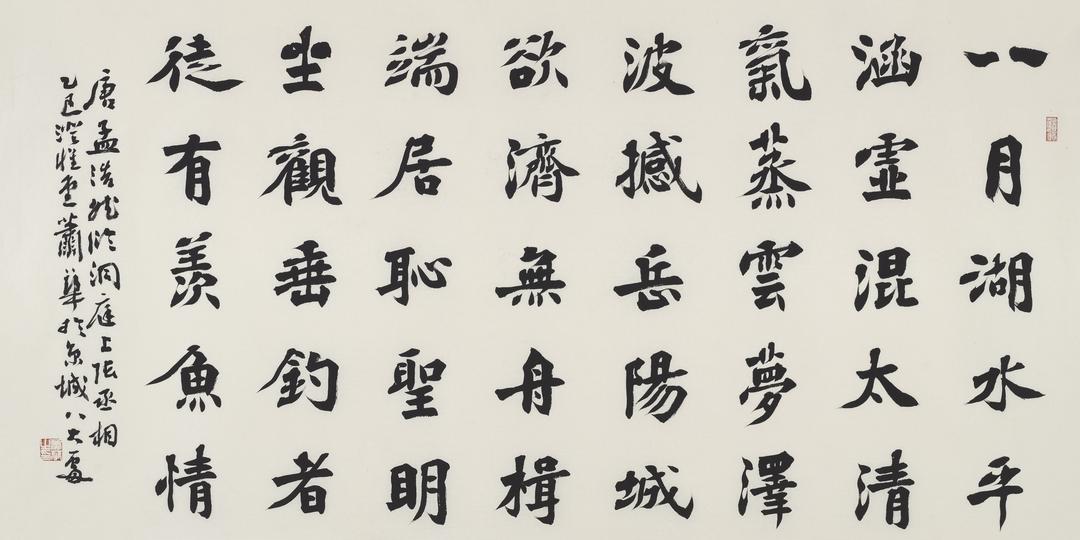 八月湖水平
涵虛混太清
氣蒸雲夢澤
波撼岳陽城
欲濟無舟楫
端居恥聖明
坐觀垂釣者
徒有羨魚情
唐孟浩然臨洞庭上張丞相
乙巳澄懷堂蕭華於京城八大處